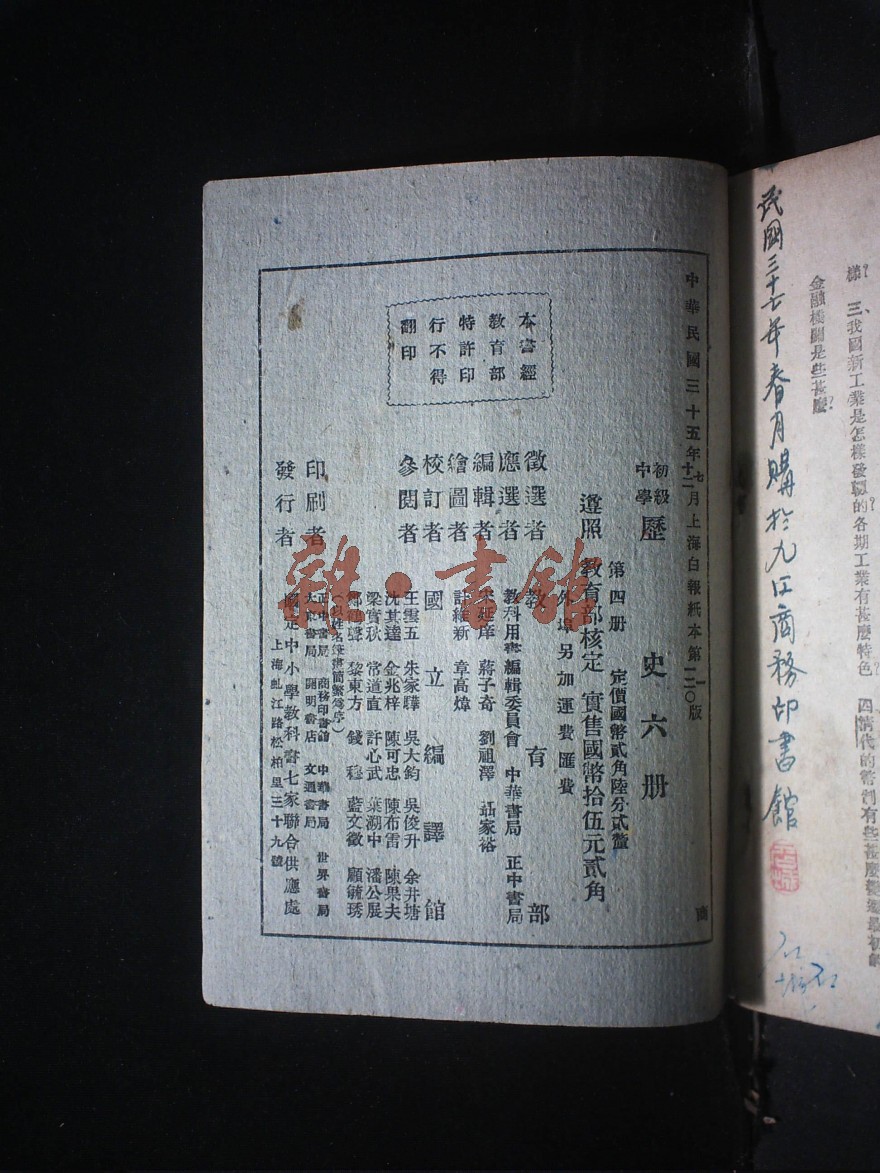 民國三十七年春月購於九江商務印書館
樣?三、我國新工業是怎樣發軔的?各期工業有甚麼特色?四、清代的幣制有些甚麼
金融機關是些甚麼?
中華民國三十五年七月上海白報紙本第一版
十二 一二〇
初級中學 歷史六册
第四册 定價國幣貳角陸分貳釐
遵照教育部核定 實售國幣拾伍元貳角
外埠另加運費匯費
徵選者 教育部
應選者 教科用書編輯委員會 中華書局 正中書局
編輯者 蔣子奇 劉祖澤 聶家裕
繪圖者 許維新 章高煒
校訂者 國立編譯館
參閱者 王雲五 朱家驊 吳大鈞 吳俊升 余井塘
沈其達 金兆梓 陳可忠 陳布雷 陳果夫
梁實秋 常道直 許心武 葉溯中 潘公展
黎東方 錢穆 藍文徵 顧毓琇
(以姓名筆畫簡繁爲序)
印刷者 正中書局 商務印書館 中華書局 世界書局
大東書局 開明書店 文通書局
發行者 國定中小學教科書七家聯合供應處
上海虬江路松柏里三十九號
本書經
教育部
特許印
行不得
翻印
商
雜·書館